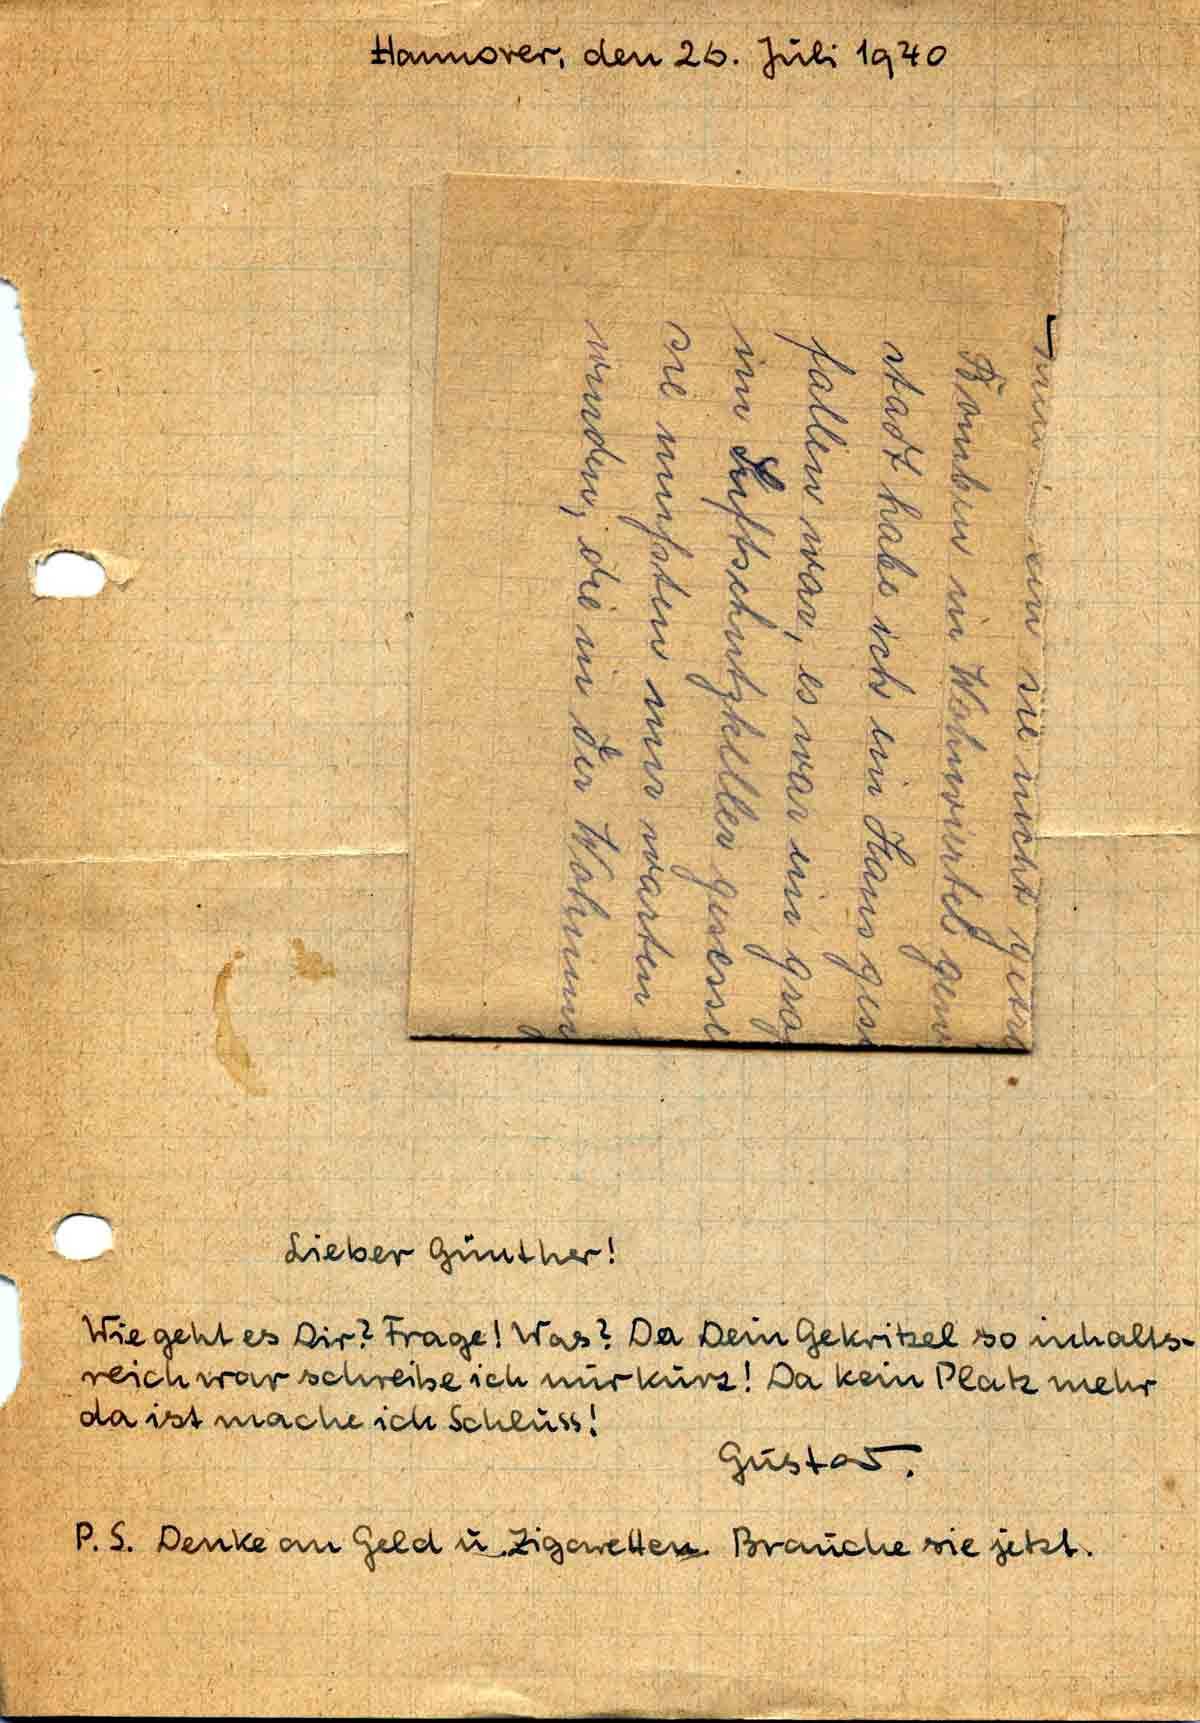 Hannover, den 26. Juli 1940
sie nicht getro
Bomben in Wohnviertel gew
stadt habe ich ein Haus ges
fallen war, es war ein gros
im Luftschutzkeller gesesse
sie mussten nur warten
wurden, die in der Wohnun
Lieber Günther!
Wie geht es Dir? Frage! Was? Da Dein Gekritzel so inhalts-
reich war schreibe ich nur kurz! Da kein Platz mehr
da ist mache ich Schluss!
Gustav.
P. S. Denke an Geld u. Zigaretten. Brauche sie jetzt.